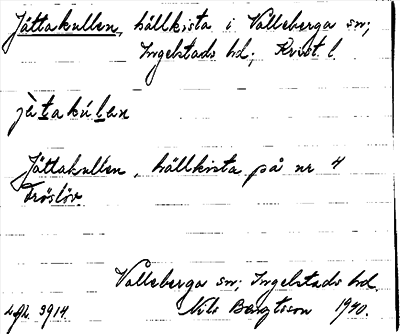 Jättakullen, hällkista i Valleberga sn;
Ingelstads hd; Krist. l.
jètakúlan
Jättakullen, hällkista på nr 4
Fröslöv.
Valleberga sn; Ingelstads hd.
3914. Nils Bengtsson 1940.